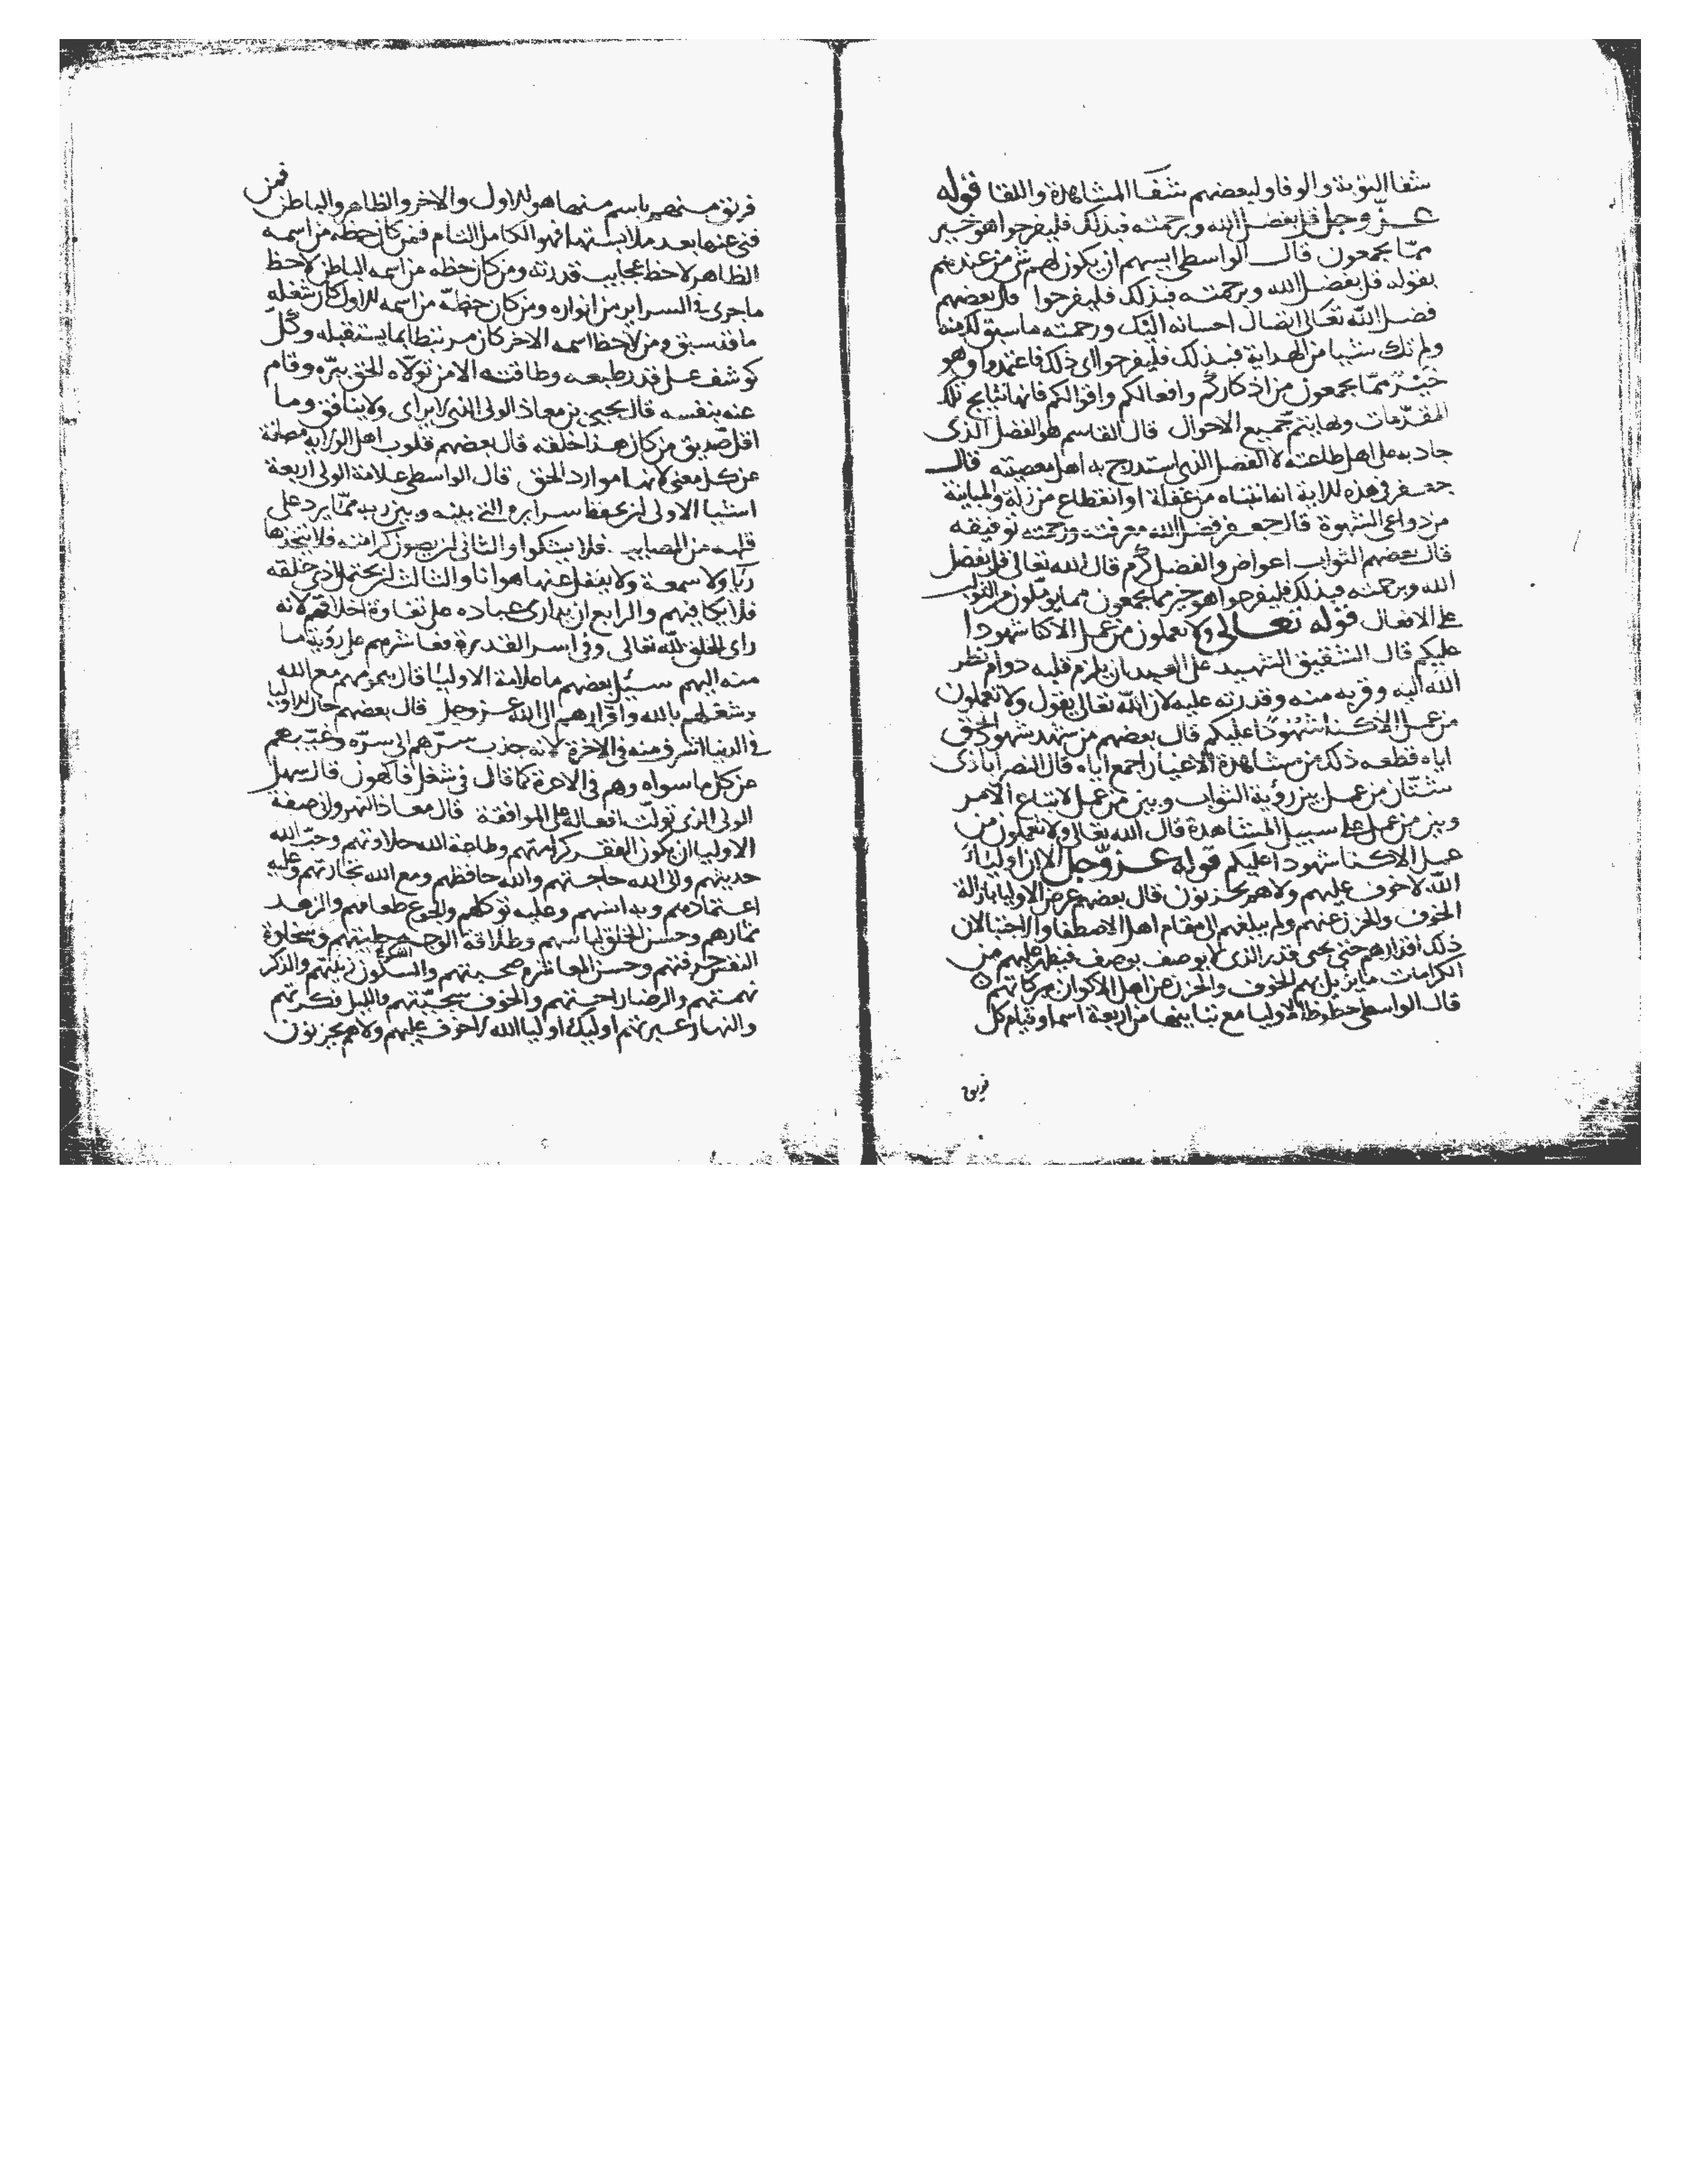 شفا التوبة والوفا ولبعضهم شفا المشاهدة واللقا قوله
عز وجل قل بفضل الله وبرحمته فبذلك فليفرحوا هو خير
مما يجمعون قال الواسطي ايسهم ان يكون لهم شئ من عندهم
بقوله قل بفضل الله وبرحمته فبذلك فليفرحوا قال بعضهم
فضل الله تعالى ايصال احسانه اليك ورحمته ما سبق لك منه
ولم تك شيا من الهداية فبذلك فليفرحوا اى ذلك فاعتمدوا وهو
خير مما يجمعون من اذكاركم وافعالكم واقوالكم فانها نتايج تلك
المقدمات وبها يتم جميع الاحوال قال القاسم هو الفضل الذى
جاد به على اهل طاعته لا الفضل الذى استدرج به اهل معصيته قال
جعفر فى هذه الاية انه انتباه من غفلة او انقطاع من زلة والمباينة
من دواعى الشهوة قال جعفر فضل الله معرفته ورحمته توفيقه
قال بعضهم الثواب اعواض والفضل كرم قال الله تعالى قل بفضل
الله وبرحمته فبذلك فليفرحوا هو خير مما يجمعون مما يوملون من الثواب
على الافعال قوله تعالى ولا تعملون من عمل الا كنا شهودا
عليكم قال الشقيق الشهيد على العبد بان يلزم قلبه دوام نظر
الله اليه وقربه منه وقدرته عليه لان الله تعالى يقول ولا تعملون
من عمل الا كنا شهودا عليكم قال بعضهم من شهد شهود الحق
اياه قطعه ذلك من مشاهدة الاغيار اجمع اياه قال النصر اباذى
شتان من عمل بين رؤية الثواب وبين من عمل لاتباع الامر
وبين من عمل على سبيل المشاهدة قال الله تعالى ولا تعملون من
عمل الا كنا شهودا عليكم قوله عز وجل الا ان اولياء
الله لا خوف عليهم ولا هم يحزنون قال بعضهم عرض الاوليا بازالة
الخوف والحزن عنهم ولم يبلغهم الى مقام اهل الاصطفا والاجتبا لان
ذلك اقرارهم حتى يحى قدر الذى لا يوصف بوصف فيظهر عليهم من
الكرامات ما يزيل بهم الخوف والحزن عن اهل الاكوان ببركاتهم
قال الواسطي حظوظ الاوليا مع تباينها من اربعة اسما وقيام كل
فريق
فريق منهم باسم منها هو الاول والاخر والظاهر والباطن فمن
فنى عنها بعد ملابستها فهو الكامل التام فمن كان حظه من اسمه
الظاهر لاحظ عجايب قدرته ومن كان حظه من اسمه الباطن لاحظ
ما جرى فى السراير من انواره ومن كان حظه من اسمه الاول كان شغله
ما قد سبق ومن لاحظ اسمه الاخر كان مرتبطا بما يستقبله وكل
كوشف على قدر طبعه وطاقته الا من تولاه الحق ببره وقام
عنه بنفسه قال يحيى بن معاذ الولى الذى لا يرائى ولا ينافق وما
اقل صديق من كان هذا خلقه قال بعضهم قلوب اهل الولاية مصانة
عن كل معنى لانها موارد الحق قال الواسطى علامة الولى اربعة
اشيا الاولى ان يحفظ سرايره التى بينه وبين ربه مما يرد على
قلبه من المصايب فلا يشكوا والثانى ان يصون كرامته فلا يتخذها
ريا ولا سمعة ولا يغفل عنها هوانا والثالث ان يحتمل اذى خلقه
فلا يكافيهم والرابع ان يدارى عباده على تفاوة اخلاقهم لانه
راى الخلق لله تعالى وفى اسر القدرة فعاشرهم على رؤية ما
منه اليهم سئل بعضهم ما علامة الاوليا قال همومهم مع الله
وشغلهم بالله وفرارهم الى الله عز وجل قال بعضهم حال الاوليا
فى الدنيا اشرف منه فى الاخرة لانه جذب سرهم الى سره وغيبهم
عن كل ما سواه وهم فى الاخرة كما قال فى شغل فاكهون قال سهل
الولى الذى توالت افعاله على الموافقة قال معاذ النهروانى صفة
الاوليا ان يكون الفقر كرامتهم وطاعة الله حلاوتهم وحب الله
حديثهم والى الله حاجتهم والله حافظهم ومع الله تجارتهم وعليه
اعتمادهم وبه انسهم وعليه توكلهم والجوع طعامهم والزهد
ثمارهم وحسن الخلق لباسهم وطلاقة الوجه حليتهم وسخاوة
النفس حرفتهم وحسن المعاشرة صحبتهم والسكون زينتهم والذكر
نهمتهم والرضا راحتهم والخوف سجيتهم والليل فكرتهم
والنهار عبرتهم اوليك اوليا الله لا خوف عليهم ولا هم يحزنون